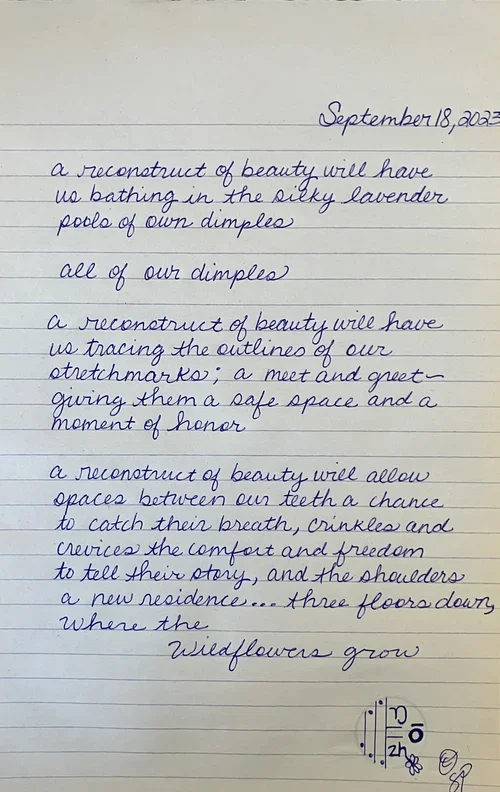 September 18, 2023
a reconstruct of beauty will have
us bathing in the silky lavender
pools of own dimples
all of our dimples
a reconstruct of beauty will have
us tracing the outlines of our
stretchmarks; a meet and greet—
giving them a safe space and a
moment of honor
a reconstruct of beauty will allow
spaces between our teeth a chance
to catch their breath, crinkles and
crevices the comfort and freedom
to tell their story, and the shoulders
a new residence... three floors down,
where the
Wildflowers grow